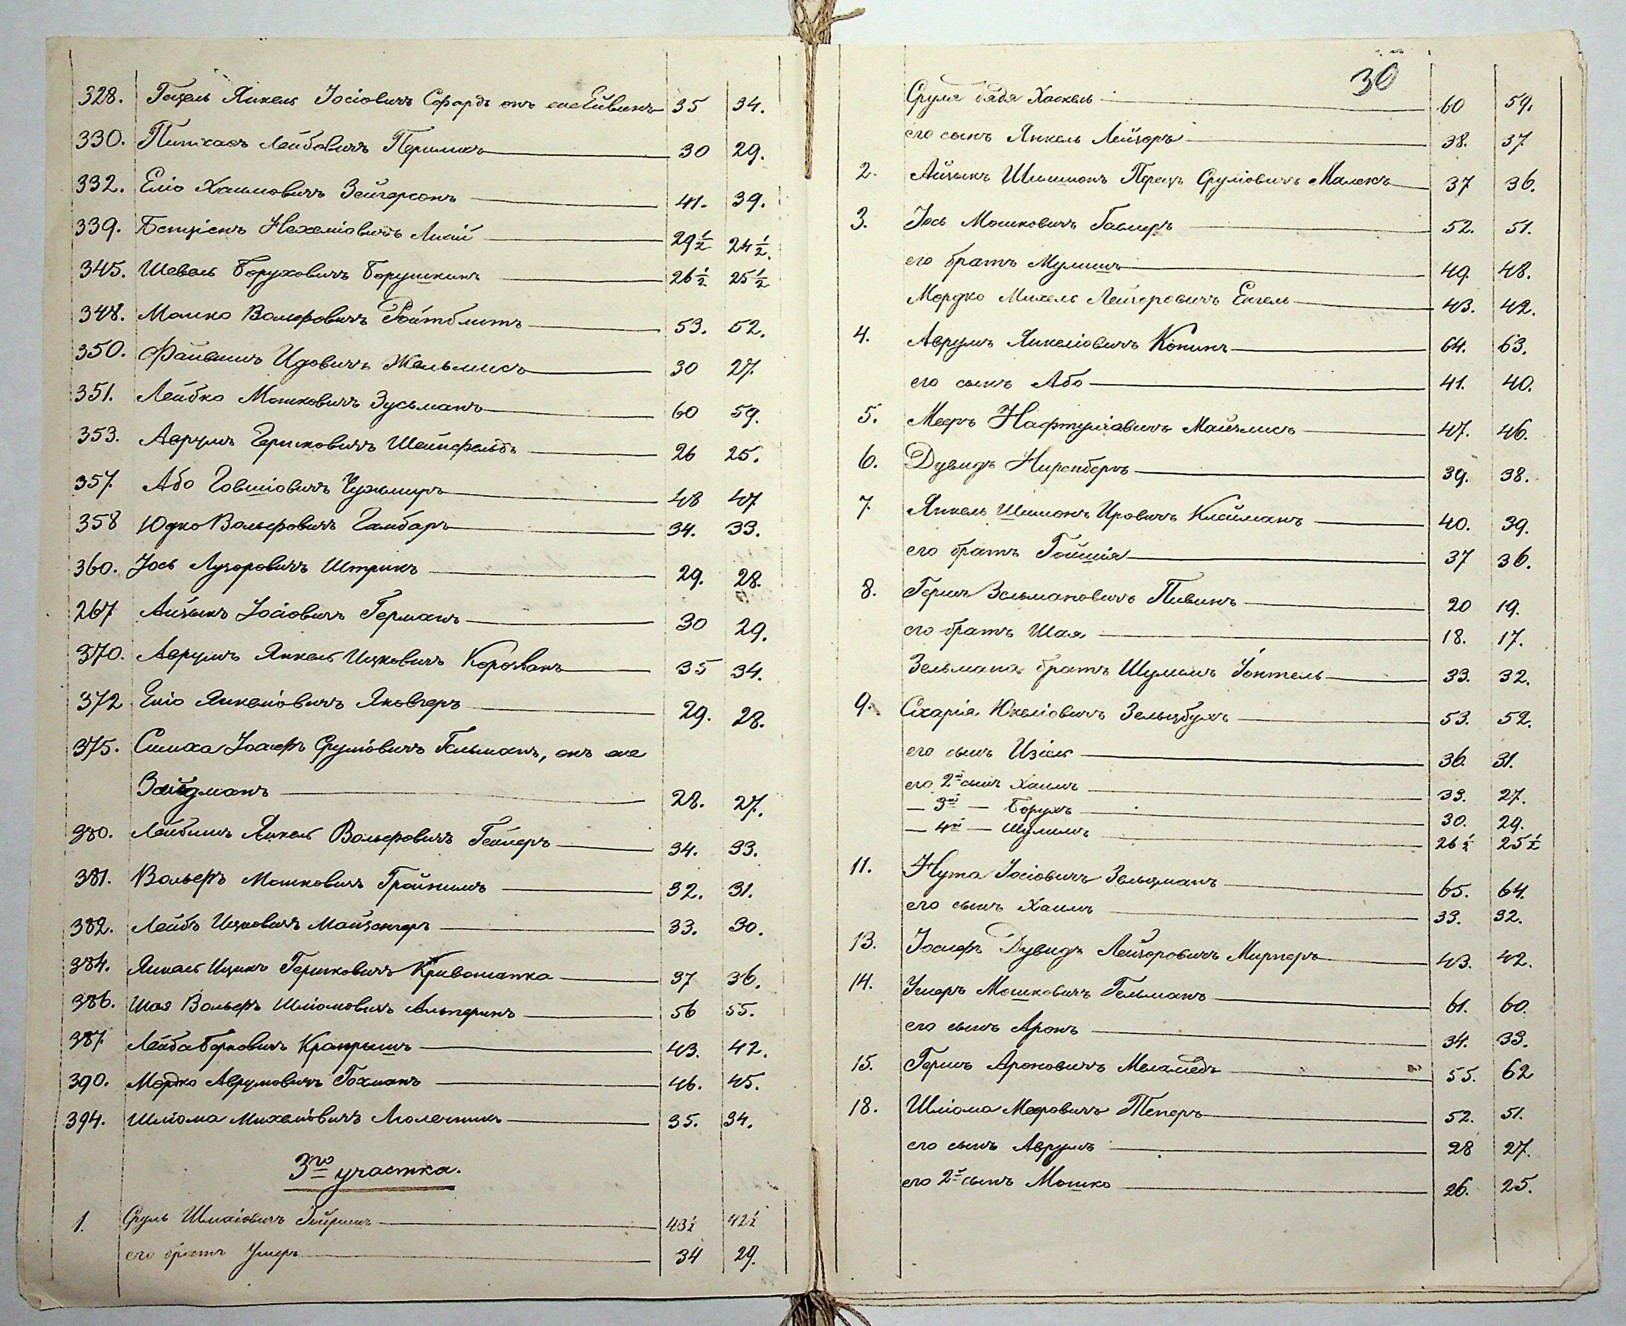 328. Янкель Іосіовичъ 35 34.
330. Пинхасъ Лейбовичъ 30 29.
332. Еліо Хаимовичъ Зейгерсонъ 41. 39.
339. 29½ 24½.
345. Шевель Боруховичъ Борушкинъ 26½ 25½
348. Мошко Вольфовичъ Ройтблитъ 53. 52.
350. Файвишъ Идовичъ 30 27.
351. Лейбко Мошковичъ Зусьманъ 60 59.
353. Аврумъ Гершковичъ Шейнфельдъ 26 25.
357. Або 48 47
358 Юдко Вольфовичъ 34. 33.
360. Іось Лузоровичъ Штрикъ 29. 28.
267 Айзыкъ Іосіовичъ Германъ 30 29.
370. Аврумъ Янкель Ицковичъ 35 34.
372 Еліо Янкеліовичъ 29. 28.
375. Симха Іосифъ Сруліовичъ Гольманъ, онъ же
Вайдманъ 28. 27.
380. Лейбишъ Янкель Вольфовичъ Гейлеръ 34. 33.
381. Вольфъ Мошковичъ Гройнимъ 32. 31.
382. Лейбъ Ицковичъ 33. 30.
384. Янкель Ицикъ Гершковичъ Кривошапка 37 36.
386. Шая Вольфъ Шліомовичъ Альперинъ 56 55.
387. Лейба Берковичъ 43. 42.
390. Мордко Аврумовичъ Гохманъ 46. 45.
394. Шліома Михеліовичъ 35. 34.
3го участка.
1. Сруль 43½ 42½
его братъ Ушеръ 34 29.
30
Сруля дядя Хаскель 60 59.
его сынъ Янкель Лейзеръ 38. 37
2. Айзыкъ Шлиомъ Перецъ Сруліовичъ 37 36.
3. Іось Мошковичъ 52. 51.
его братъ 49. 48.
Мордко Михель Лейзеровичъ Енгель 43. 42.
4. Аврумъ Янкеліовичъ Копинъ 64. 63.
его сынъ Або 41. 40.
5. Мееръ Нафтуліовичъ Майзлисъ 47. 46.
6. Дувидъ Ниренбергъ 39. 38.
7 Янкель Шимонъ Ировичъ Клейманъ 40. 39.
его братъ Гойшія 37 36.
8. Гершъ Зельмановичъ Пивинъ 20 19.
его братъ Шая 18. 17.
Зельмана братъ Шулимъ 33. 32.
9. Сахарія Юкеліовичъ 53. 52.
его сынъ 36. 31.
его 2й сынъ Хаимъ 33. 27.
— 3й — Борухъ 30. 29.
— 4й — Шулимъ 26½ 25½
11. Нута Іосіовичъ Зельцманъ 65. 64.
его сынъ Хаимъ 33. 32.
13. Іосифъ Дувидъ Лейзеровичъ 43. 42.
14. Ушеръ Мошковичъ Гельманъ 61. 60.
его сынъ Аронъ 34. 33.
15. Гершъ Ароновичъ Меламедъ 55. 62
18. Шліома Мееровичъ Теперъ 52. 51.
его сынъ Аврумъ 28 27.
его 2й сынъ Мошко 26. 25.